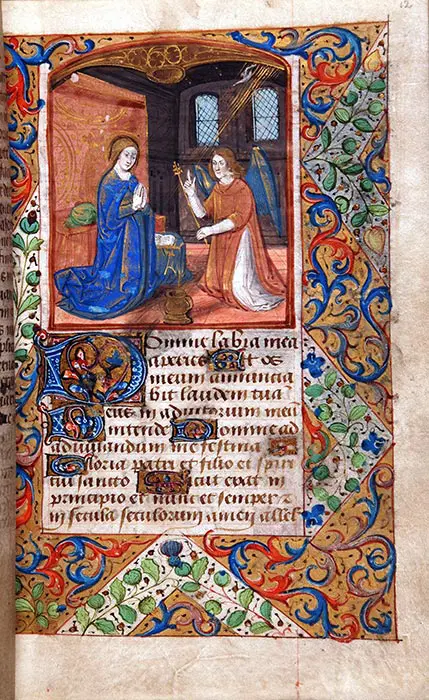 12
Domine labia mea
aperies Et os
meum annuncia
bit laudem tua
Deus in adiutorium meu
intende Domine ad
adiuuandum me festina
Gloria patri et filio et spiri
tui sancto Sicut erat in
principio et nunc et semper z
in secula seculorum amen allel